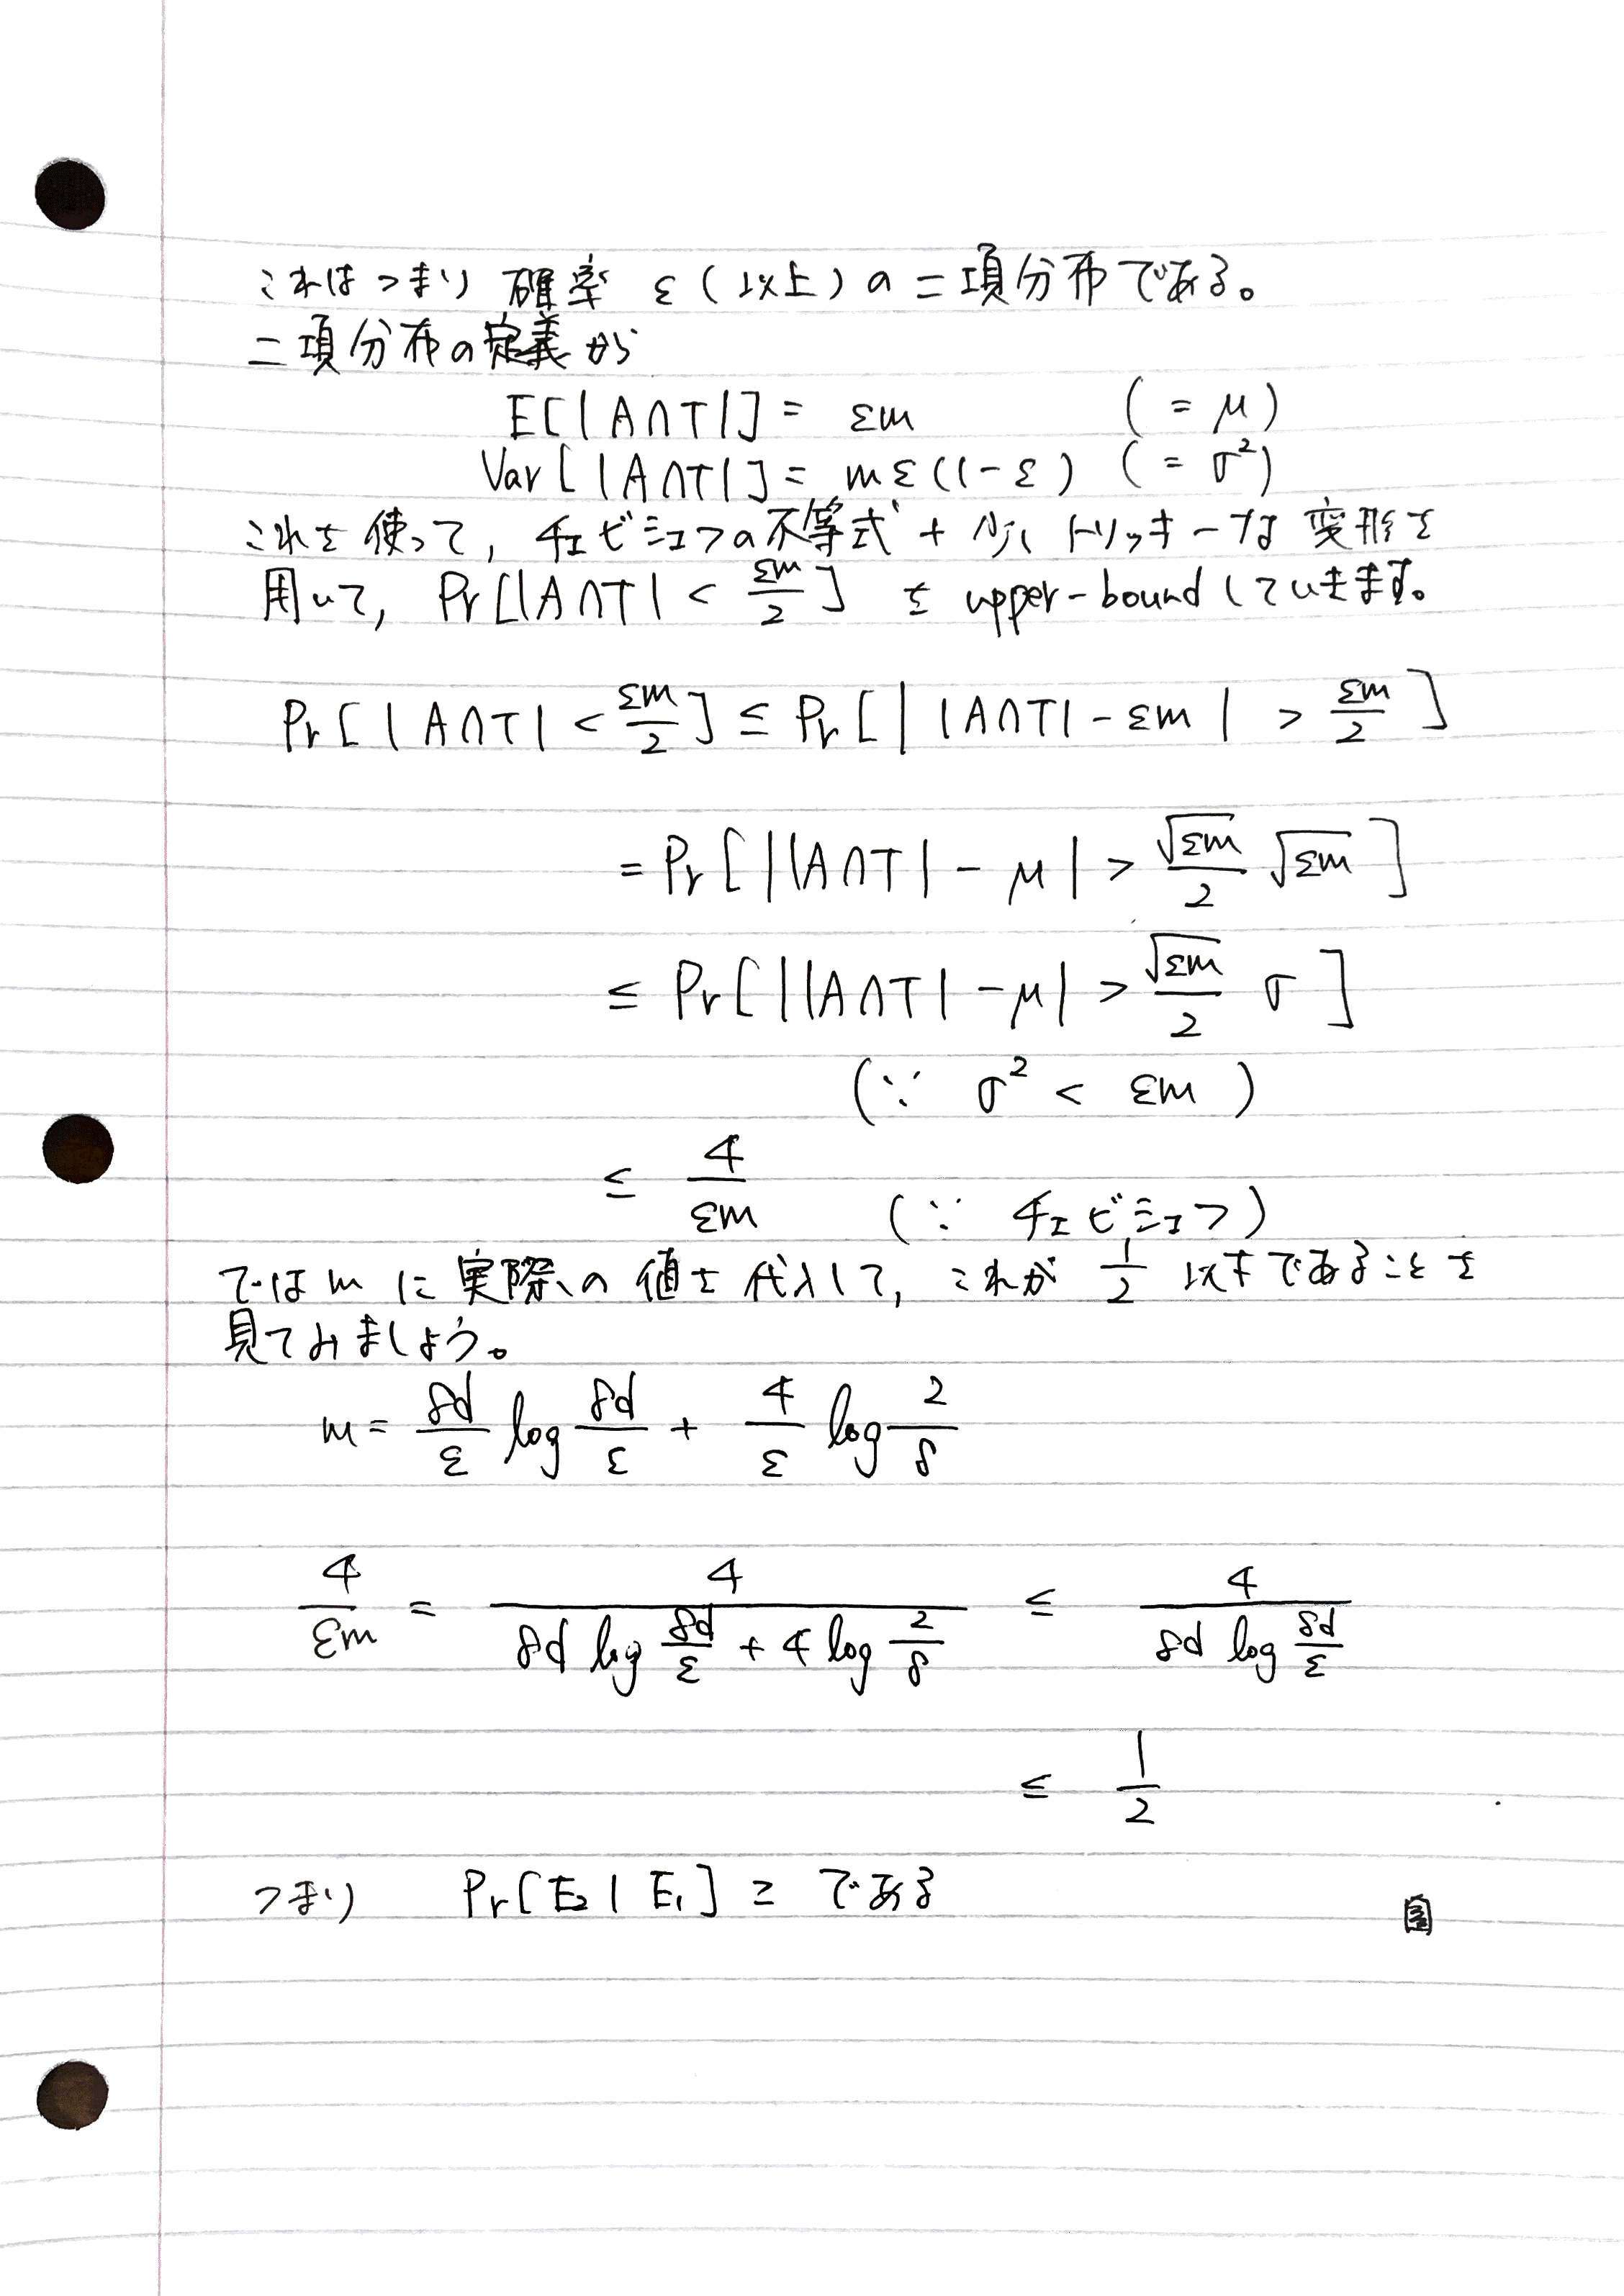 これはつまり 確率 ε(以上)の二項分布である。
二項分布の定義から
E[|A∩T|] = εm (= μ)
Var[|A∩T|] = mε(1-ε) (= σ²)
これを使って, チェビシェフの不等式 + 少しトリッキーな変形を
用いて, Pr[|A∩T| < εm/2] を upper-bound していきます。
Pr[|A∩T| < εm/2] ≤ Pr[| |A∩T| - εm | > εm/2]
= Pr[| |A∩T| - μ | > √(εm)/2 √(εm)]
≤ Pr[| |A∩T| - μ | > √(εm)/2 σ]
(∵ σ² < εm)
≤ 4/(εm) (∵ チェビシェフ)
では m に実際の値を代入して, これが 1/2 以下であることを
見てみましょう。
m = 8d/ε log 8d/ε + 4/ε log 2/δ
4/(εm) = 4/(8d log 8d/ε + 4 log 2/δ) ≤ 4/(8d log 8d/ε)
≤ 1/2
つまり Pr[E₂ | E₁] ≥ である